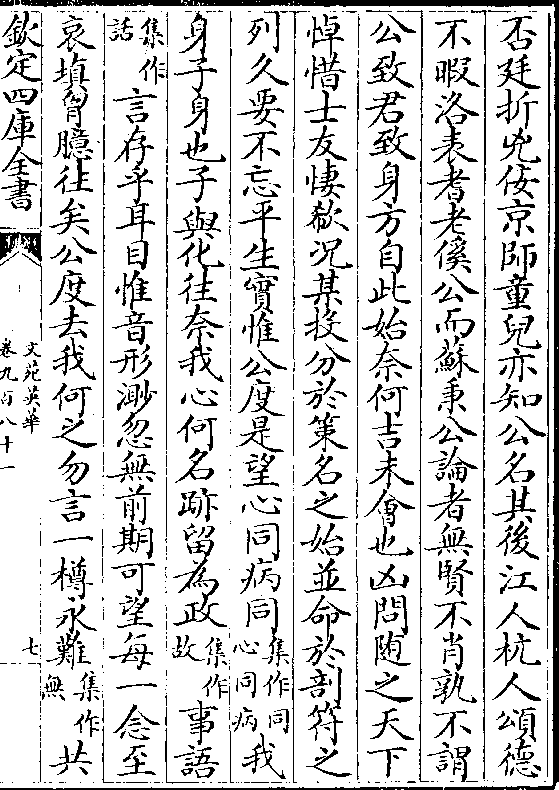 否廷折兇佞京師童兒亦知公名其後江人杭人頌德
不暇洛表耆老傒公而蘇秉公論者無賢不肖孰不謂
公致君致身方自此始奈何吉未會也凶問随之天下
悼惜士友悽欷況某投分於策名之始並命於剖符之
列久要不忘平生實惟公度是望心同病同集作同心同病我
身子身也子與化往奈我心何名跡留為政集作故事語
集作話言存乎耳目惟音形渺忽無前期可望每一念至
哀填胷臆往矣公度去我何之勿言一樽永難集作無共
欽定四庫全書
文苑英華
卷九百八十一
七